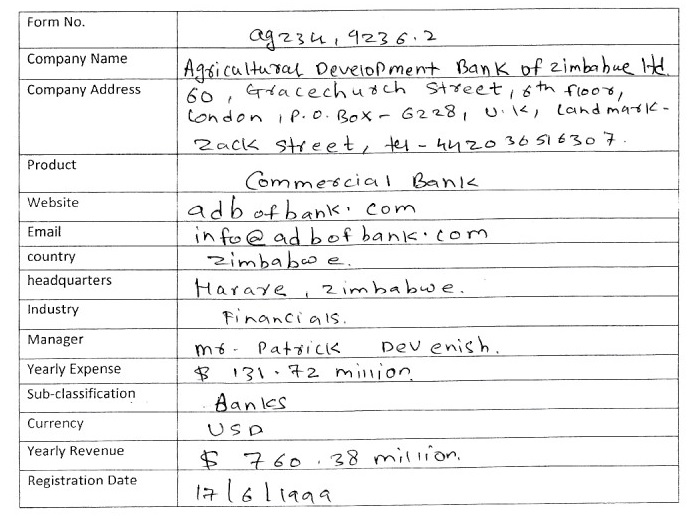 Form No. ag234, 9236.2
Company Name Agricultural Development Bank of Zimbabwe ltd.
Company Address 60, Gracechurch Street, 6th floor,
London, P.O. Box - 6228, U.K, Landmark-
Zack Street, tel - 442036516307.
Product Commercial Bank
Website adbofbank.com
Email info@adbofbank.com
country Zimbabwe.
headquarters Harare, Zimbabwe.
Industry Financials.
Manager mr. Patrick Devenish.
Yearly Expense $ 131.72 million
Sub-classification Banks
Currency USD
Yearly Revenue $ 760.38 million.
Registration Date 17/6/1999